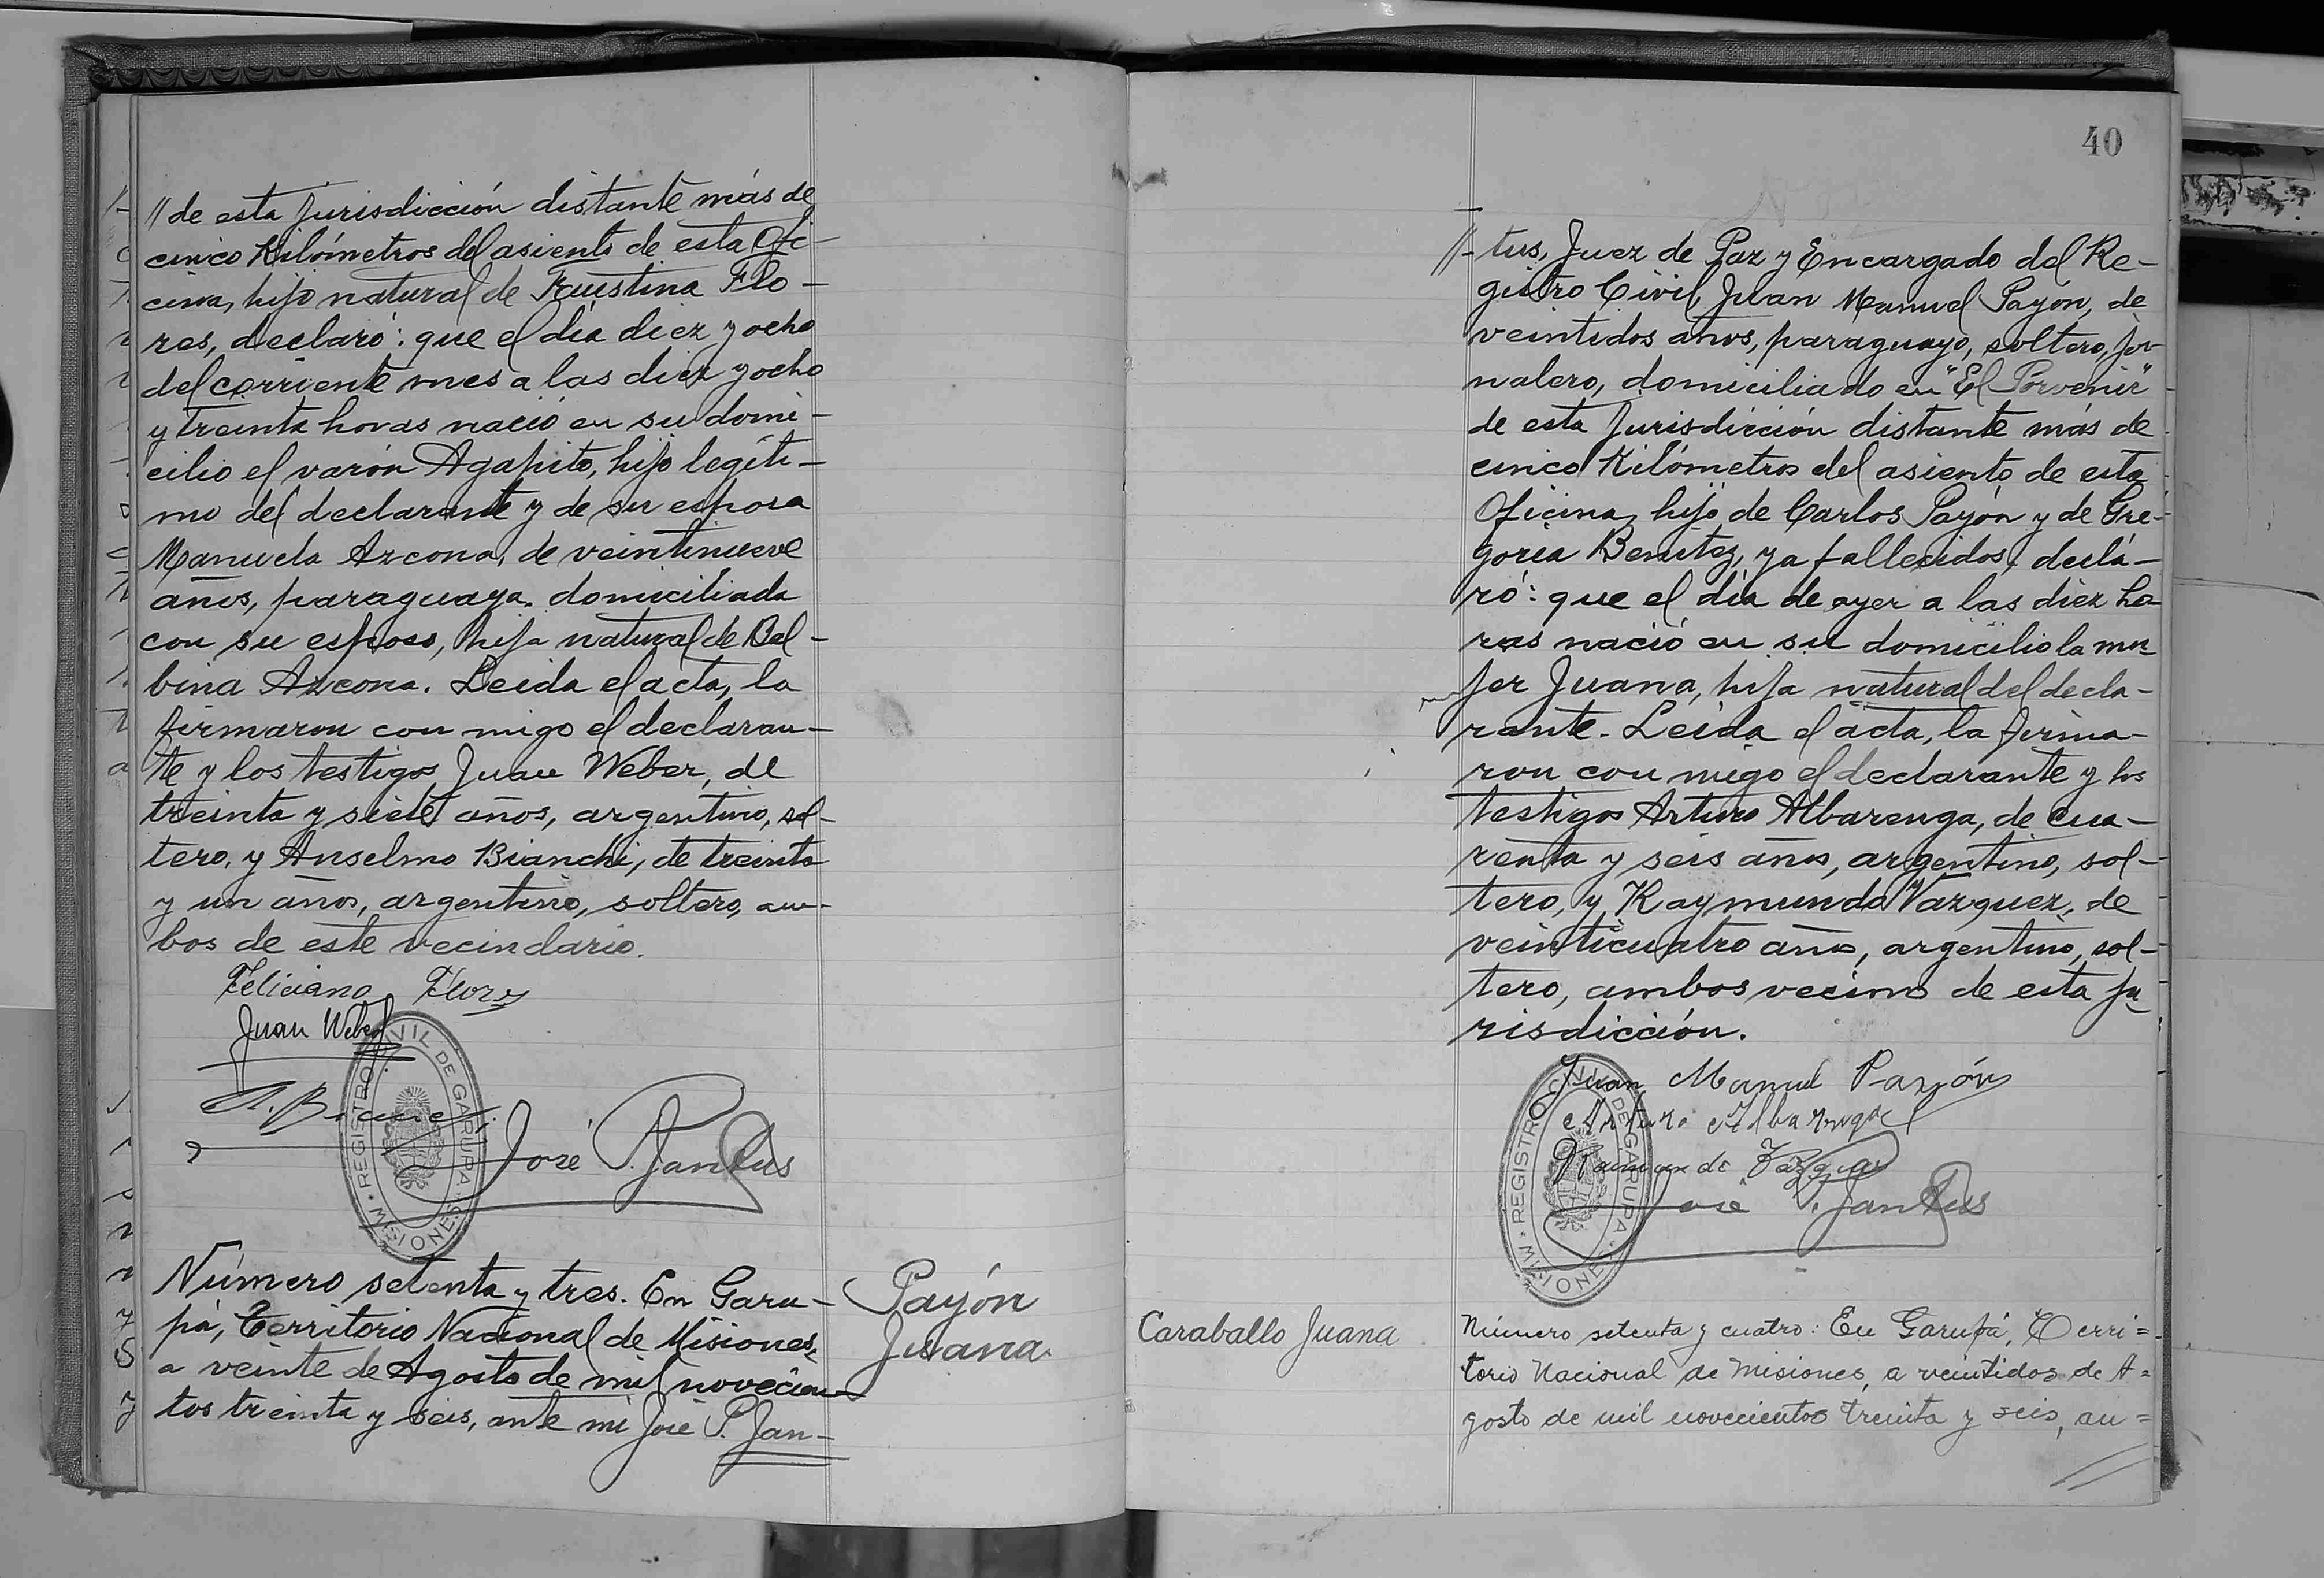 // de esta Jurisdicción distante más de
cinco Kilómetros del asiento de esta Ofi-
cina, hijo natural de Faustina Flo-
res, declaró: que el día diez y ocho
del corriente mes a las diez y ocho
y treinta horas nació en su domi-
cilio el varón Agapito, hijo legíti-
mo del declarante y de su esposa
Manuela Azcona, de veintinueve
años, paraguaya, domiciliada
con su esposo, hija natural de Bal-
bina Azcona. Leída el acta, la
firmaron con migo el declaran-
te y los testigos Juan Weber, de
treinta y siete años, argentino, sol-
tero, y Anselmo Bianchi, de treinta
y un años, argentino, soltero, am-
bos de este vecindario.
Feliciano Flores
Juan Weber
A. Bianchi
José P. Jantus
REGISTRO CIVIL DE GARUPA · MISIONES ·
Número setenta y tres. En Garu-
pá, Territorio Nacional de Misiones,
a veinte de Agosto de mil novecien-
tos treinta y seis, ante mí José P. Jan-
Payón
Juana
40
//-tus, Juez de Paz y Encargado del Re-
gistro Civil, Juan Manuel Payón, de
veintidos años, paraguayo, soltero, jor
nalero, domiciliado en "El Porvenir"
de esta Jurisdicción distante más de
cinco Kilómetros del asiento de esta
Oficina, hijo de Carlos Payón y de Gre-
goria Benítez, ya fallecidos, decla-
ró: que el día de ayer a las diez ho-
ras nació en su domicilio la mu
jer Juana, hija natural del decla-
rante. Leída el acta, la firma-
ron con migo el declarante y los
testigos Arturo Albarenga, de cua-
renta y seis años, argentino, sol-
tero, y Raymundo Vázquez, de
veinticuatro años, argentino, sol-
tero, ambos vecinos de esta ju
risdicción.
Juan Manuel Payón
Arturo Albarenga
Raimundo Vázquez
José P. Jantus
REGISTRO CIVIL DE GARUPA · MISIONES ·
Caraballo Juana
Número setenta y cuatro: En Garupá, Terri=
torio Nacional de Misiones, a veintidos de A=
gosto de mil novecientos treinta y seis, an=
//